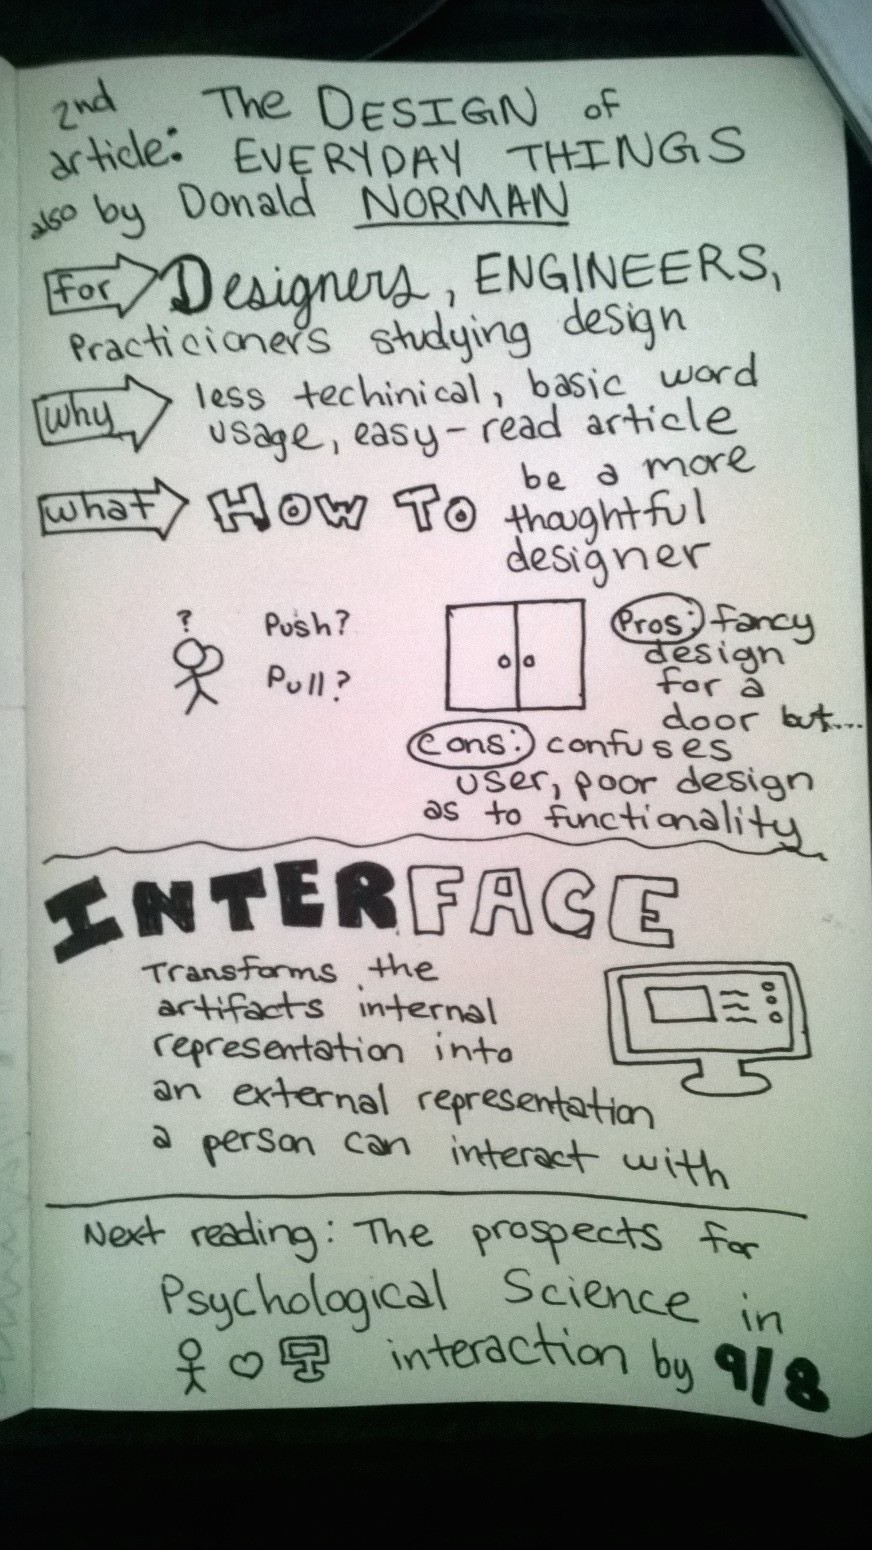 2nd The DESIGN of
article: EVERYDAY THINGS
also by Donald NORMAN
for Designers, ENGINEERS,
Practicioners studying design
why less techinical, basic word
usage, easy-read article
what HOW TO be a more
thoughtful
designer
?
Push?
Pull?
Pros: fancy
design
for a
door but...
Cons: confuses
user, poor design
as to functionality
INTERFACE
Transforms the
artifacts internal
representation into
an external representation
a person can interact with
Next reading: The prospects for
Psychological Science in
interaction by 9/8